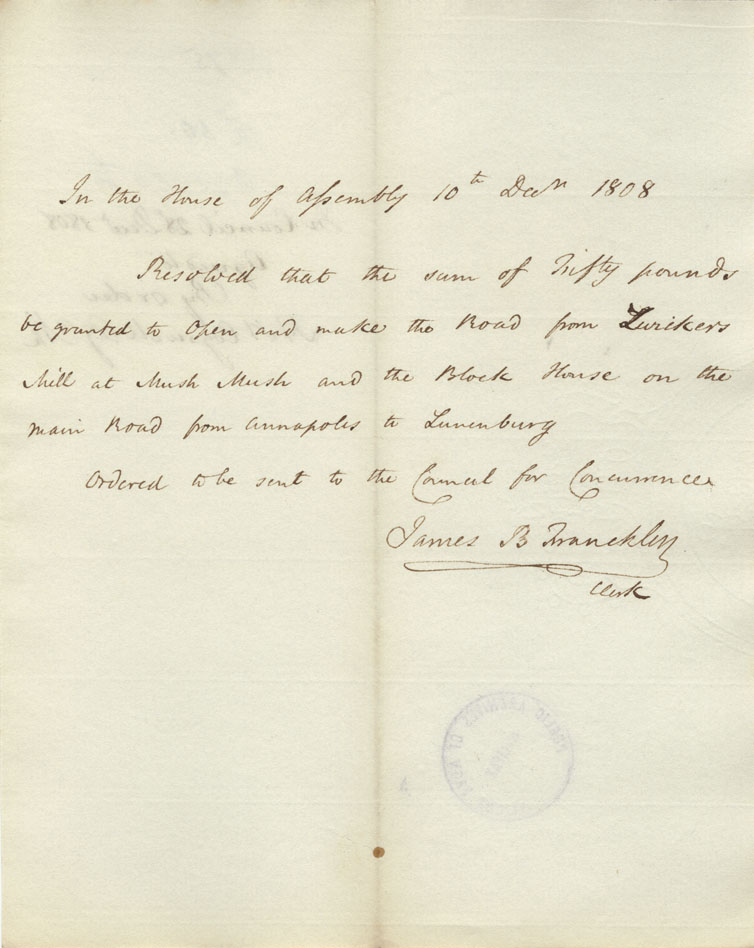 In the House of Assembly 10th Decr 1808
Resolved that the sum of Fifty pounds
be granted to open and make the Road from Zwickers
Mill at Mush Mush and the Block House on the
main Road from Annapolis to Lunenburg
Ordered to be sent to the Council for Concurrence
James B Francklin
Clerk
In Council 28 Decr 1808
PUBLIC ARCHIVES OF NOVA